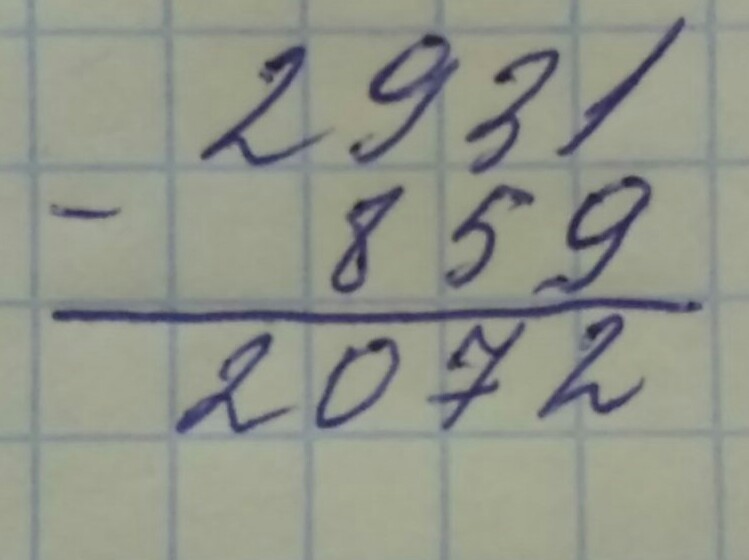 2931
- 859
2072